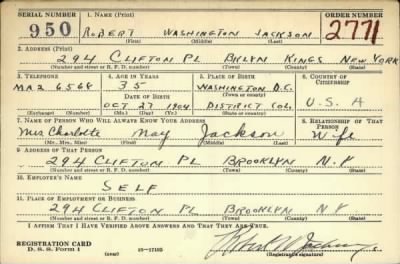 SERIAL NUMBER 1. NAME (Print) ORDER NUMBER
950 ROBERT WASHINGTON JACKSON 2771
(First) (Middle) (Last)
2. ADDRESS (Print)
294 CLIFTON PL BKLYN KINGS NEW YORK
(Number and street or R. F. D. number) (Town) (County) (State)
3. TELEPHONE 4. AGE IN YEARS 5. PLACE OF BIRTH 6. COUNTRY OF CITIZENSHIP
MA2 6568 35 WASHINGTON D.C.
DATE OF BIRTH
OCT 27 1904 DISTRICT COL. U.S.A
(Exchange) (Number) (Mo.) (Day) (Yr.) (State or country)
7. NAME OF PERSON WHO WILL ALWAYS KNOW YOUR ADDRESS 8. RELATIONSHIP OF THAT PERSON
Mrs Charlotte May Jackson Wife
(Mr., Mrs., Miss) (First) (Middle) (Last)
9. ADDRESS OF THAT PERSON
294 CLIFTON PL BROOKLYN N.Y
(Number and street or R. F. D. number) (Town) (County) (State)
10. EMPLOYER'S NAME
SELF
11. PLACE OF EMPLOYMENT OR BUSINESS
294 CLIFTON PL BROOKLYN N.Y
(Number and street or R. F. D. number) (Town) (County) (State)
I AFFIRM THAT I HAVE VERIFIED ABOVE ANSWERS AND THAT THEY ARE TRUE.
REGISTRATION CARD
D. S. S. Form 1 (over) 16-17105 (Registrant's signature)